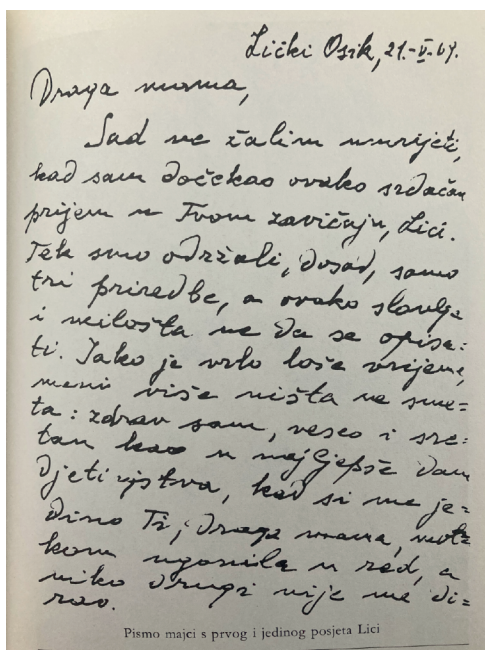 Lički Osik, 21.-V-69.
Draga mama,
Sad ne žalim umrijeti,
kad sam dočekao ovako srdačan
prijem u Tvom zavičaju, Lici.
Tek smo održali, dosad, samo
tri priredbe, a ovako slavlje
i milošta ne da se opisa=
ti. Iako je vrlo loše vrijeme,
meni više ništa ne sme=
ta: zdrav sam, veseo i sre=
tan kao u najljepše dane
djetinjstva, kad si me je=
dino Ti, draga mama, motk
kom ugonila u red, a
niko drugi nije me di=
rao.
Pismo majci s prvog i jedinog posjeta Lici